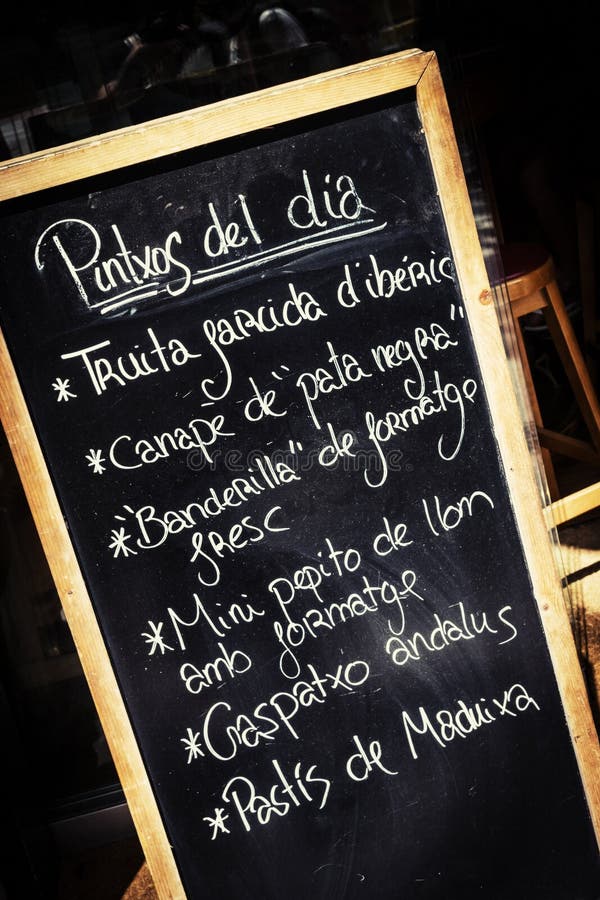 Pintxos del dia
* Truita farcida d'ibèric
* Canapè de "pata negra"
* "Banderilla" de formatge
fresc
* Mini pepito de llom
amb formatge
* Gaspatxo andalus
* Pastís de Maduixa